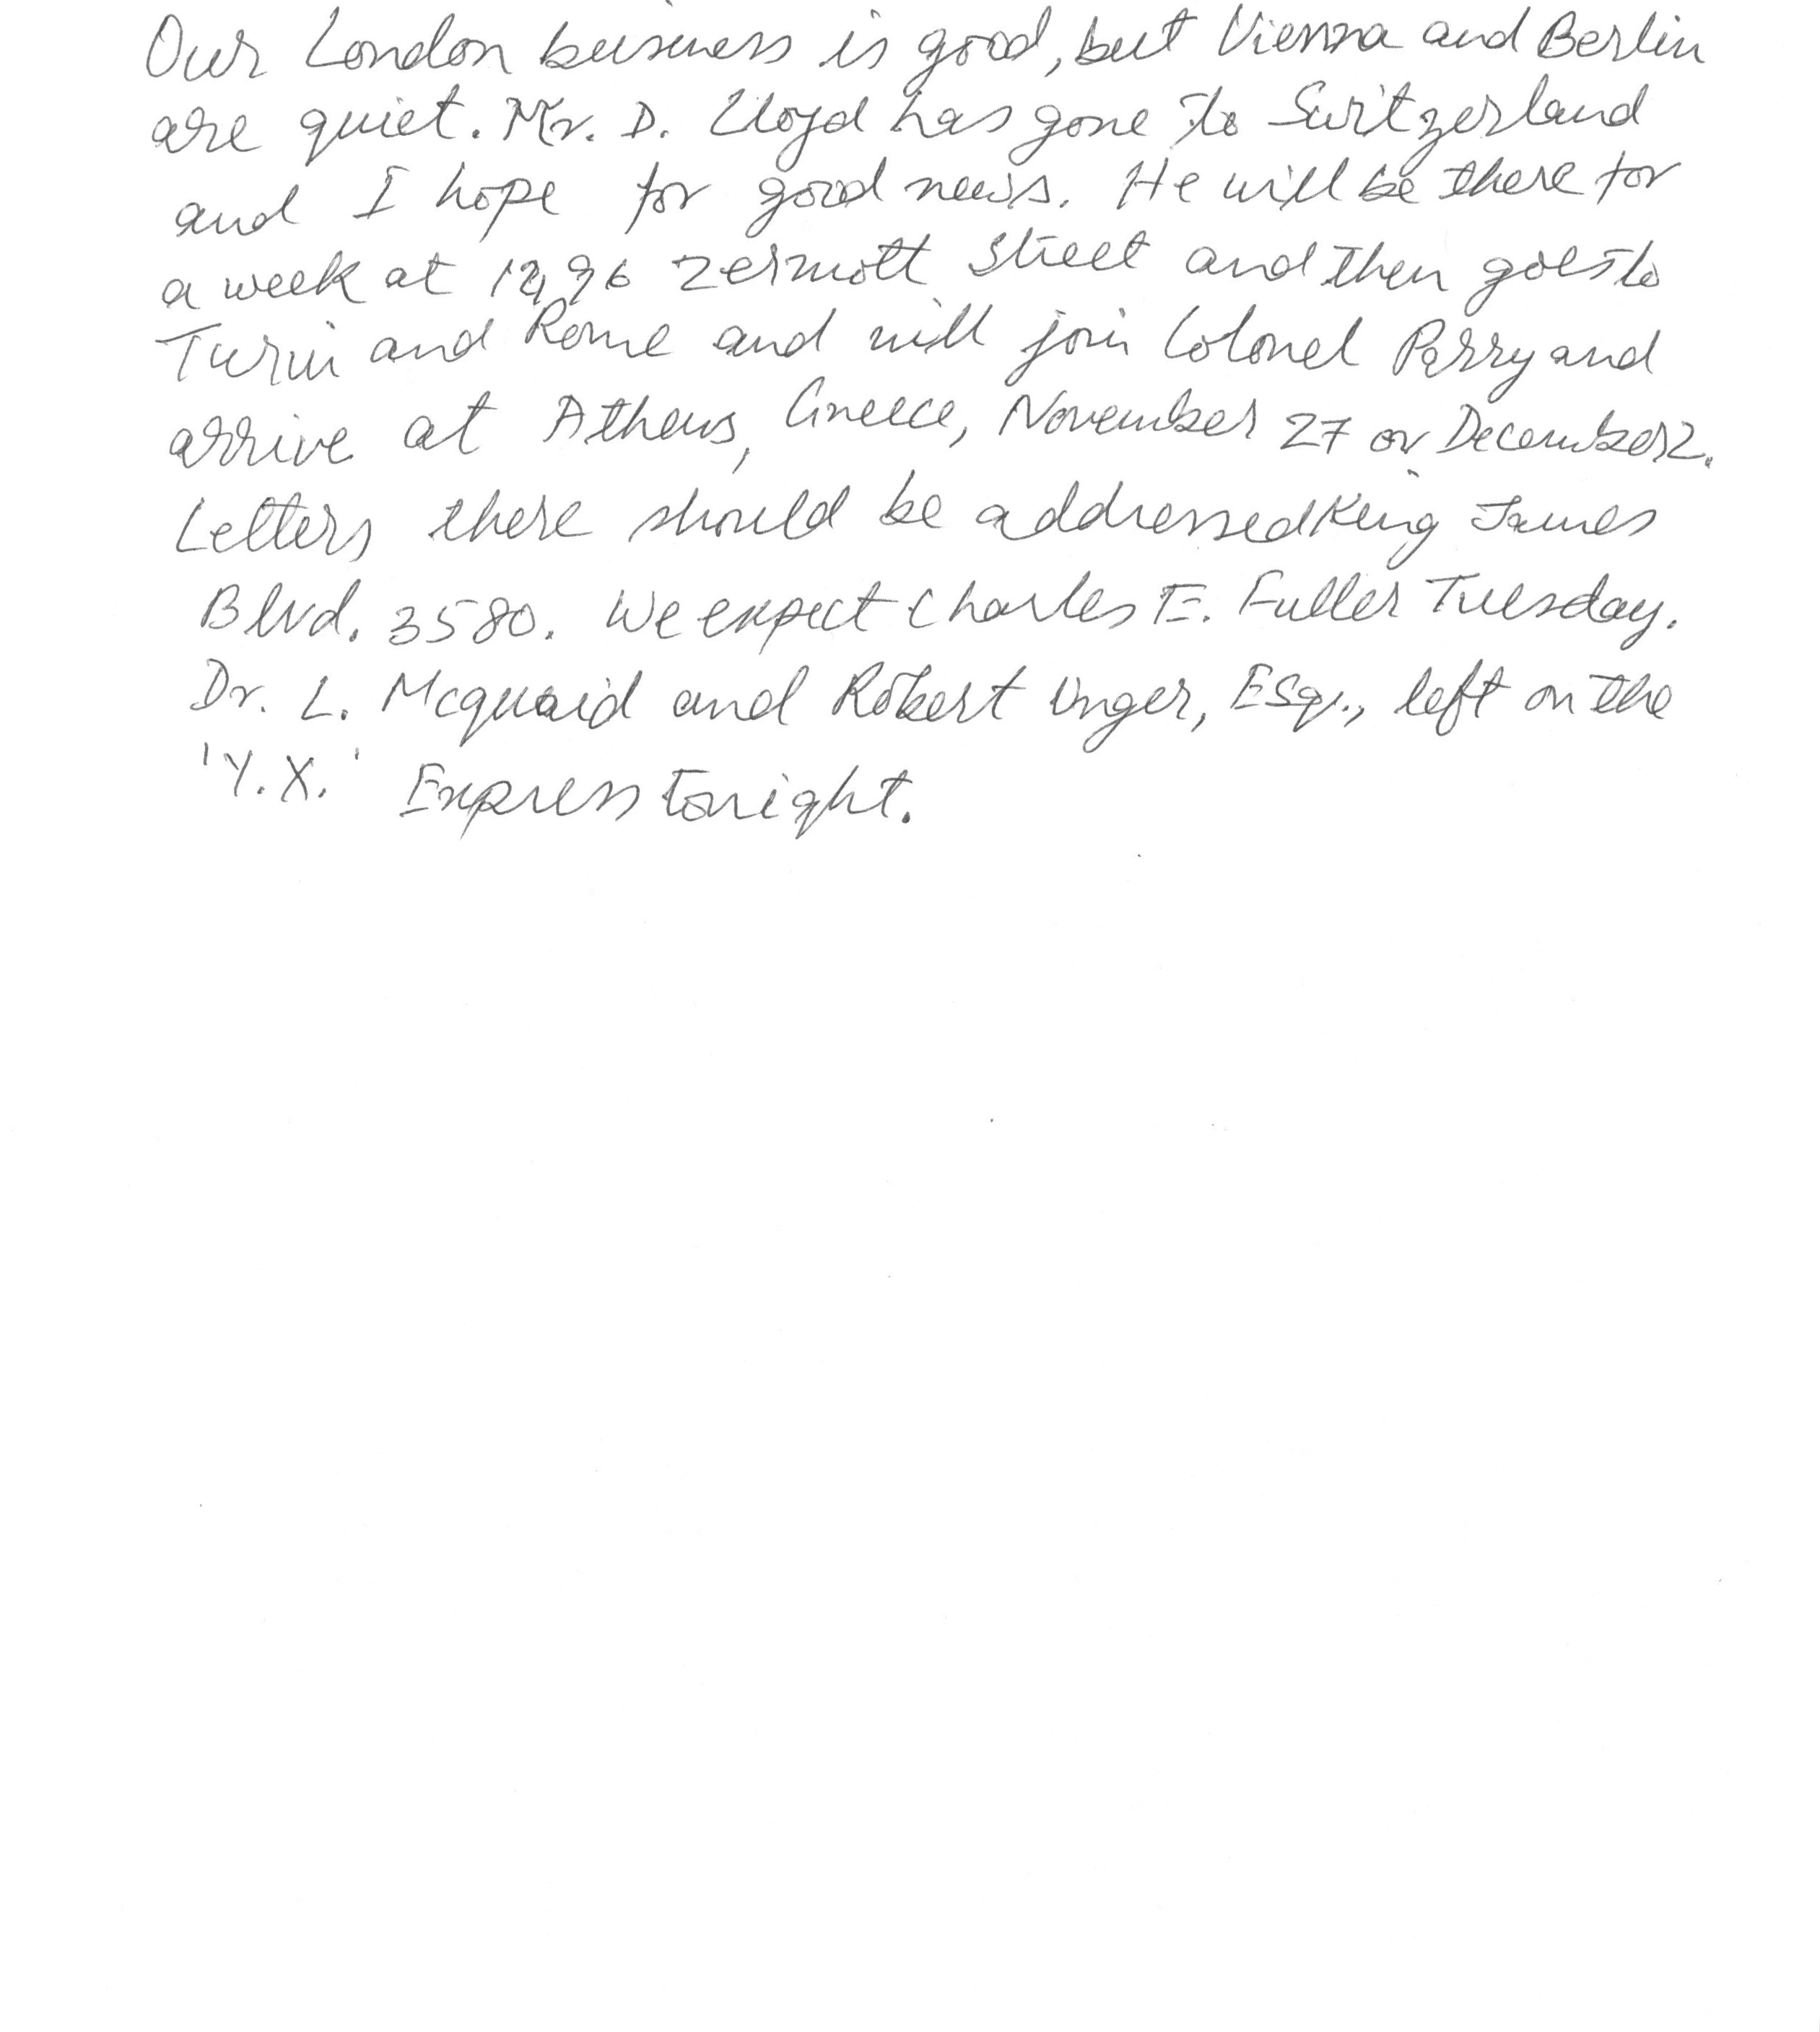 Our London business is good, but Vienna and Berlin
are quiet. Mr. D. Lloyd has gone to Switzerland
and I hope for good news. He will be there for
a week at 1296 Zermott Street and then goes to
Turin and Rome and will join Colonel Parry and
arrive at Athens, Greece, November 27 or December 2.
Letters there should be addressed King James
Blvd. 3580. We expect Charles E. Fuller Tuesday.
Dr. L. Mcquaid and Robert Unger, Esq., left on the
'Y.X.' Express tonight.